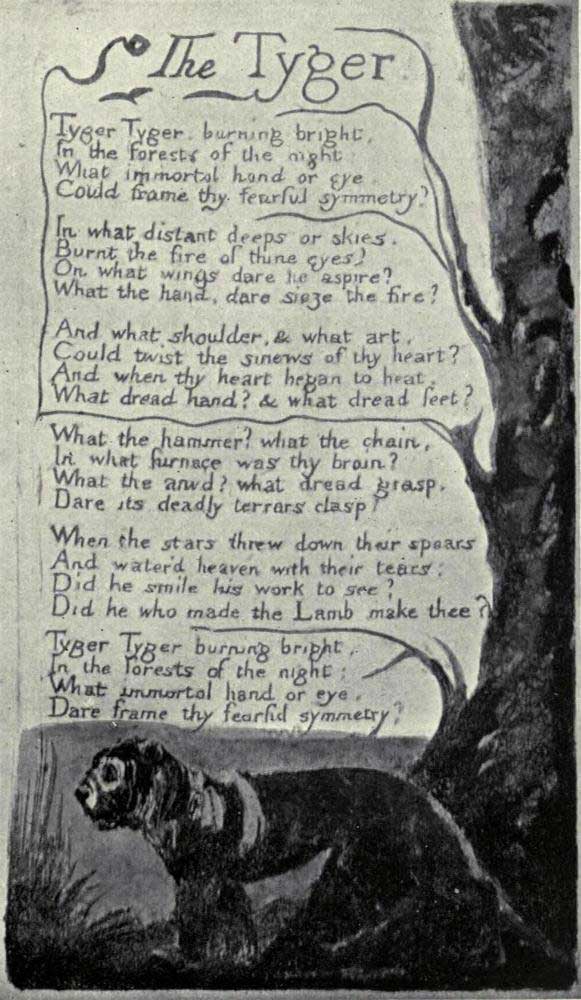 The Tyger
Tyger Tyger. burning bright,
In the forests of the night
What immortal hand or eye
Could frame thy fearful symmetry?
In what distant deeps or skies.
Burnt the fire of thine eyes?
On what wings dare he aspire?
What the hand, dare sieze the fire?
And what shoulder, & what art,
Could twist the sinews of thy heart?
And when thy heart began to beat,
What dread hand? & what dread feet?
What the hammer? what the chain,
In what furnace was thy brain?
What the anvil? what dread grasp,
Dare its deadly terrors clasp?
When the stars threw down their spears
And water'd heaven with their tears:
Did he smile his work to see?
Did he who made the Lamb make thee?
Tyger Tyger burning bright,
In the forests of the night:
What immortal hand or eye,
Dare frame thy fearful symmetry?